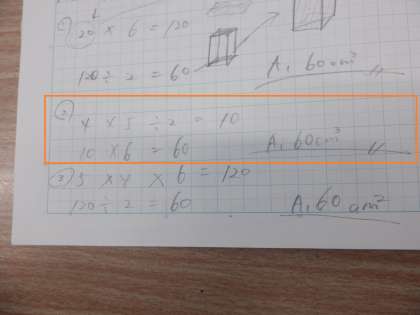 ① 20 × 6 = 120
120 ÷ 2 = 60
A, 60cm³
② 4 × 5 ÷ 2 = 10
10 × 6 = 60
A, 60cm³
③ 5 × 4 × 6 = 120
120 ÷ 2 = 60
A, 60cm²